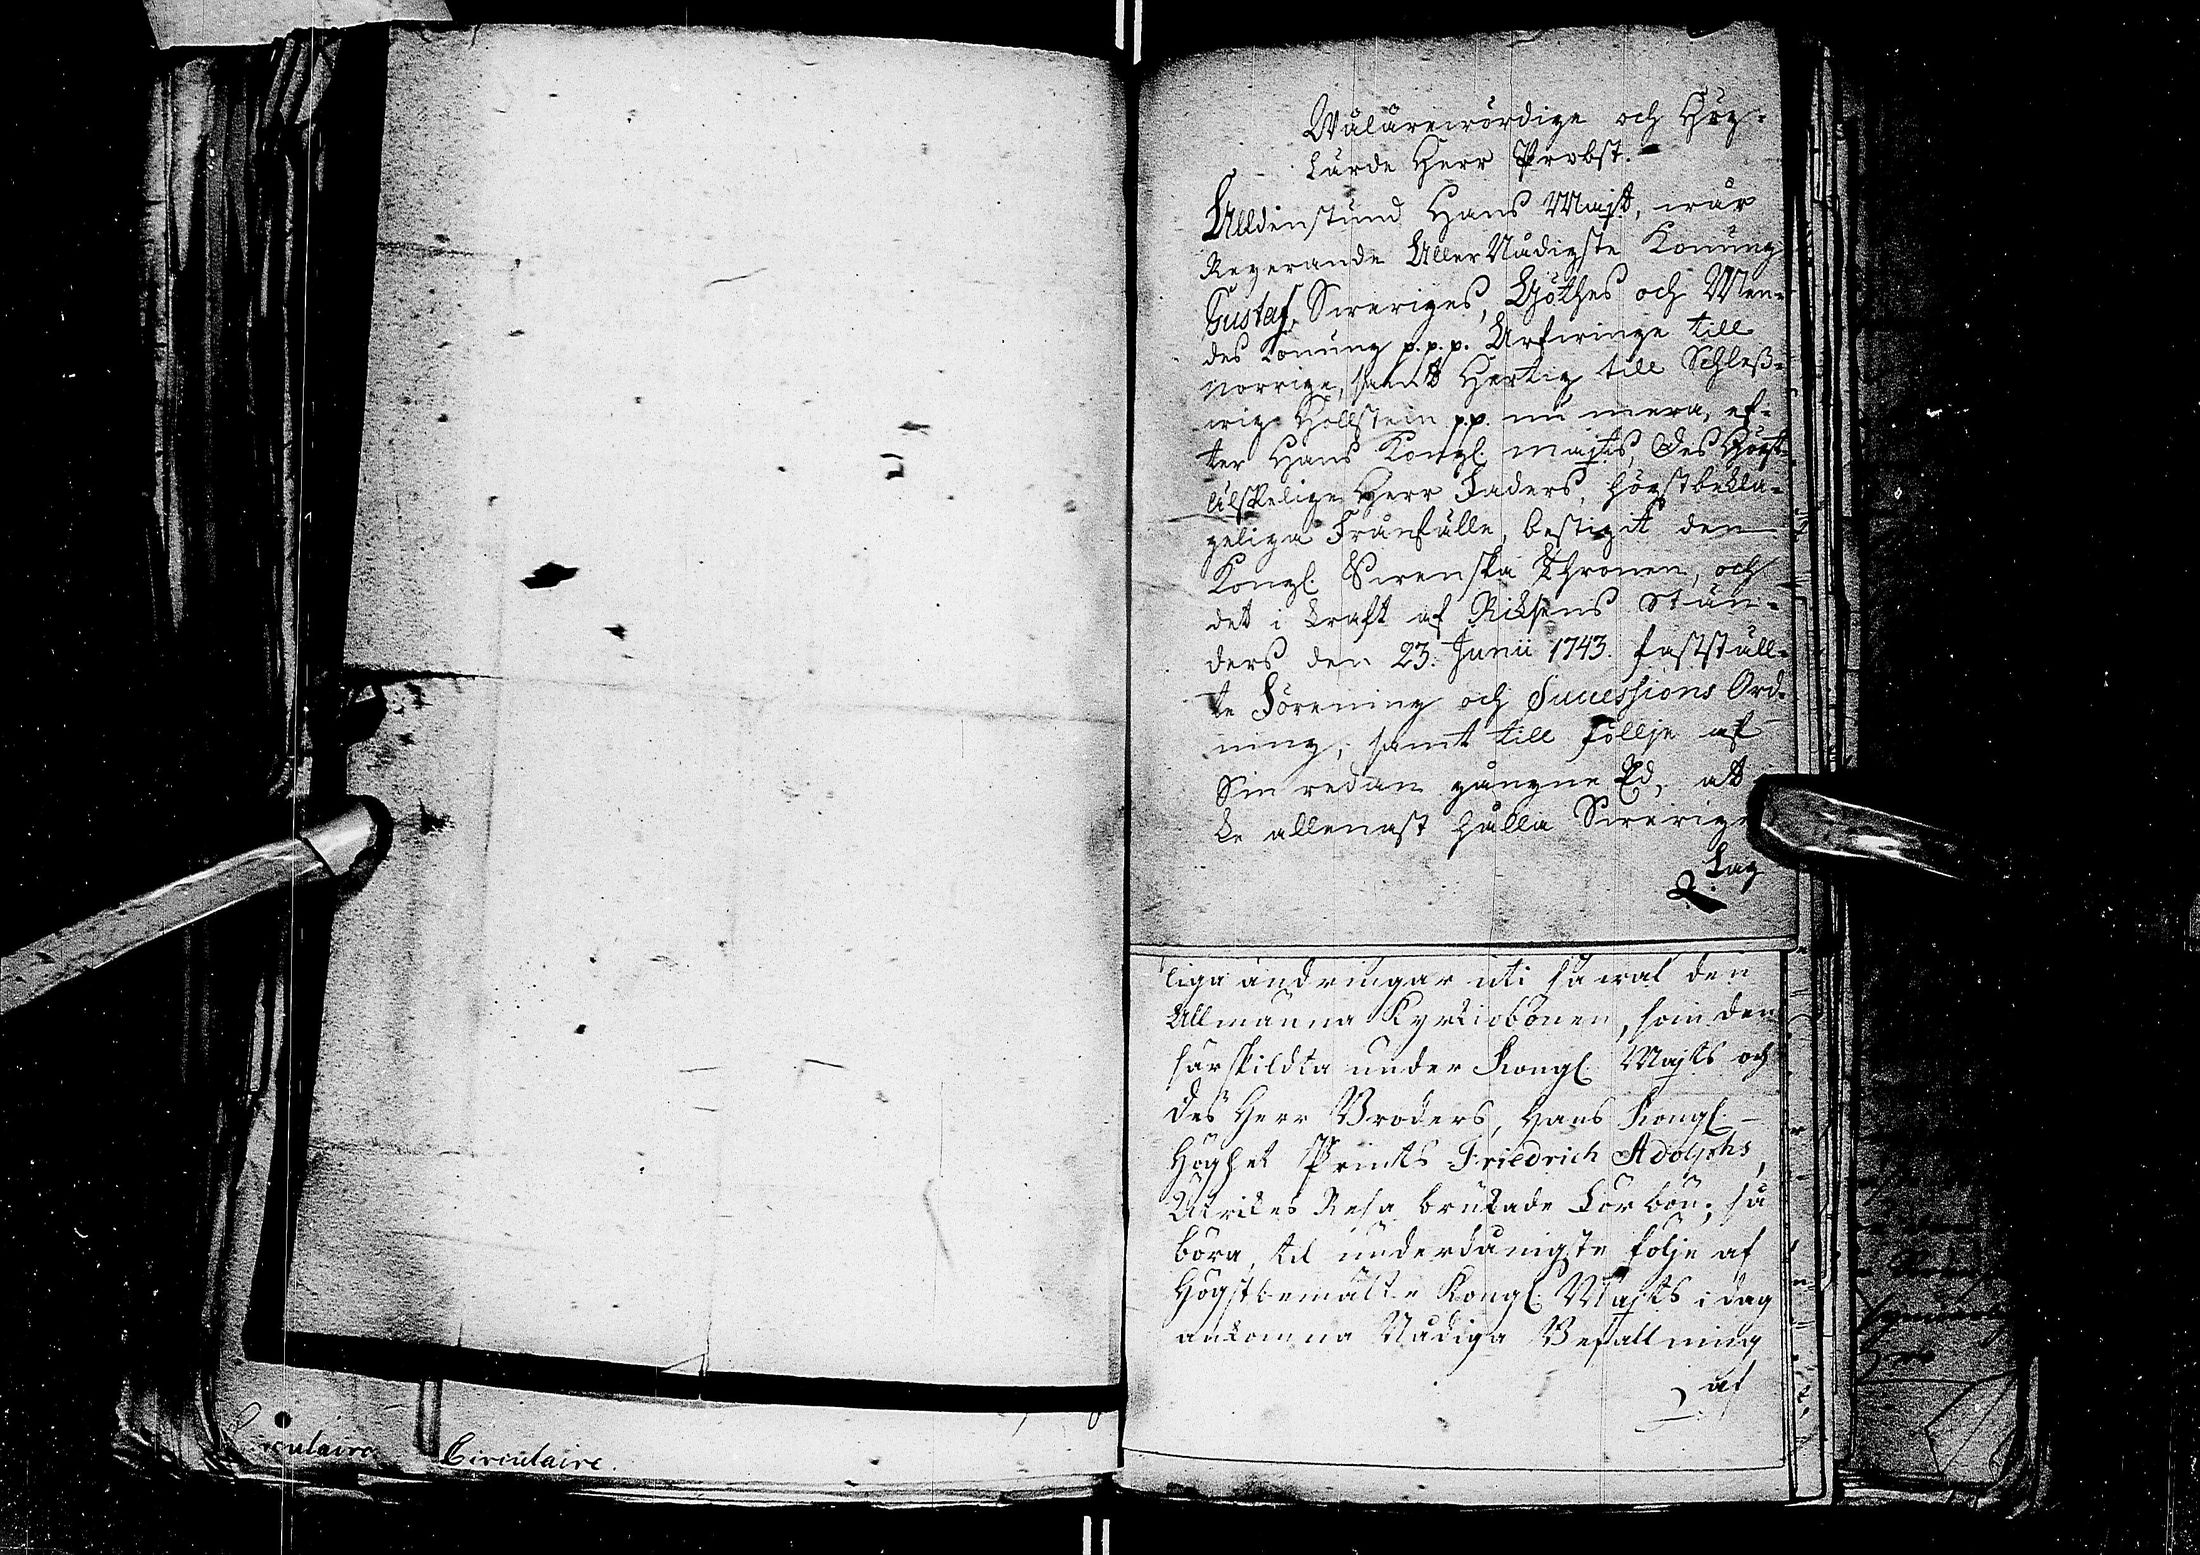 Wälärewördige och Hög-
Lärde Herr Probst.
Alldenstund Hans Majt, wår
Regerande AllerNådigste Konung
Gustaf, Sweriges, Göthes och Wen-
des Konung p.p.p. Arfwinge till
Norrige, samt Hertig till Schleß-
wig Hollstein p.p. nu mera, ef-
ter Hans Kongl. Majts, Des Högt-
älskelige Herr Faders, högstbekla-
geliga Frånfälle, bestigit den
Kongl. Swenska Thronen, och
det i kraft af Riksens Stän-
ders den 23. Junii 1743. fastställ-
te Förening och Successions Ord-
ning, samt till följe af
Sin redan gångne Ed, att
ke allenast hålla Swerige
Lag
liga ändringar uti så wäl den
Allmänna Kyrkiobönen, som den
särskildta under Kongl. Majts och
Des Herr Broders, Hans Kongl.
Höghet Prints Friedrich Adolphs,
Utrikes Resa brukade Förbön; så
böra, til underdånigste följe af
Högstbemälte Kongl. Majts i dag
ankomna Nådiga Befallning
af
Circulaire
Circulaire.